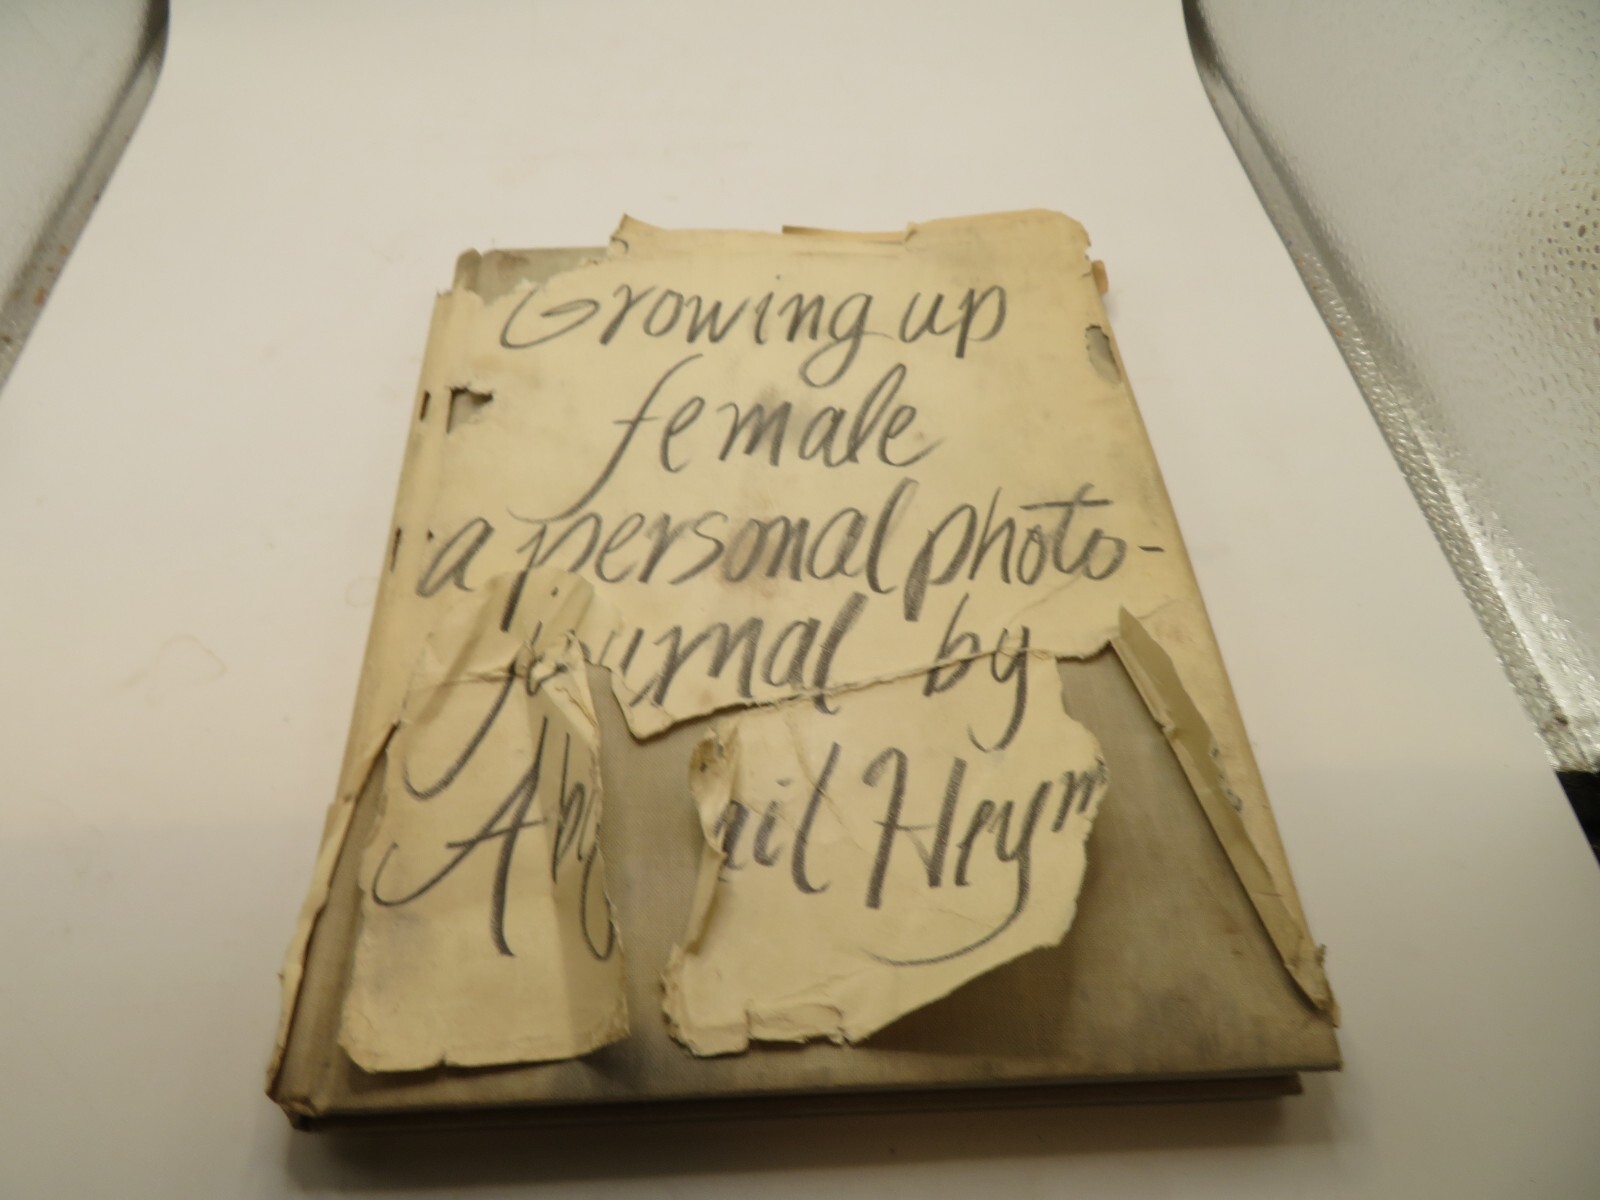 Growing up
female
a personal photo-
journal by
Abigail Heym